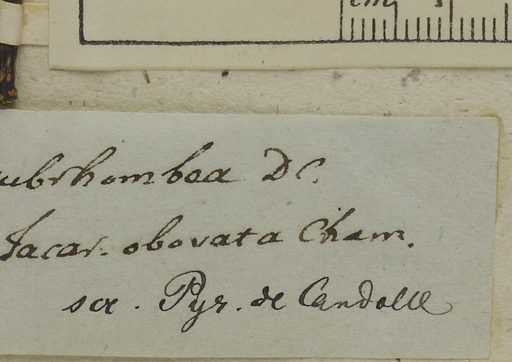 cm
ubrhombea DC.
Jacar. obovata Cham.
scr. Pyr. de Candolle